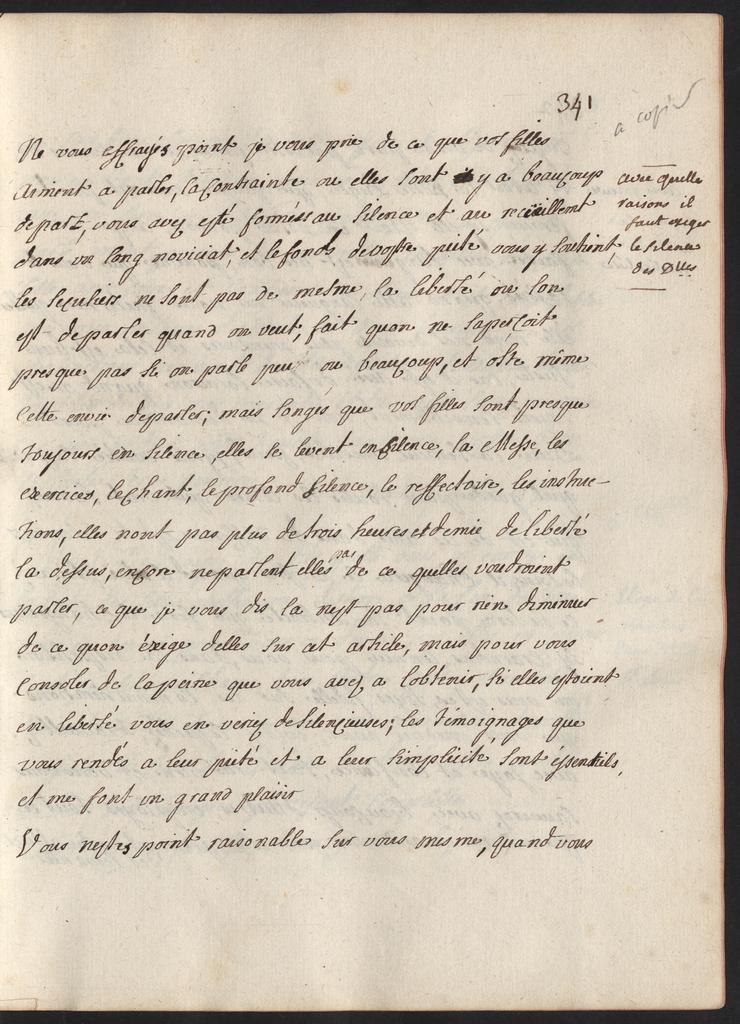 341
a copier
Ne vous effrayés point je vous prie de ce que vos filles
aiment a parler, la contrainte ou elles sont y a beaucoup
de part, vous avez esté formées au silence et au recüeillemt
dans un long noviciat, et le fonds de vostre pieté vous y soutient,
les seculiers ne sont pas de mesme, la liberté ou lon
est de parler quand on veut, fait quon ne sapercoit
presque pas si on parle peu ou beaucoup, et oste même
cette envie de parler; mais songés que vos filles sont presque
toujours en silence, elles se levent en silence, la Messe, les
exercices, le chant, le profond silence, le reffectoire, les instruc-
tions, elles nont pas plus de trois heures et demie de liberté
la dessus, encore ne parlent elles pas de ce quelles voudroient
parler, ce que je vous dis la nest pas pour rien diminuer
de ce quon éxige delles sur cet article, mais pour vous
consoler de la peine que vous avez a lobtenir, si elles estoient
en liberté vous en veriez de silencieuses; les témoignages que
vous rendés a leur pieté et a leur simplicité sont éssentiels,
et me font un grand plaisir
Vous nestes point raisonable sur vous mesme, quand vous
avec quelle
raisons il
faut exiger
le silence
des Dlles